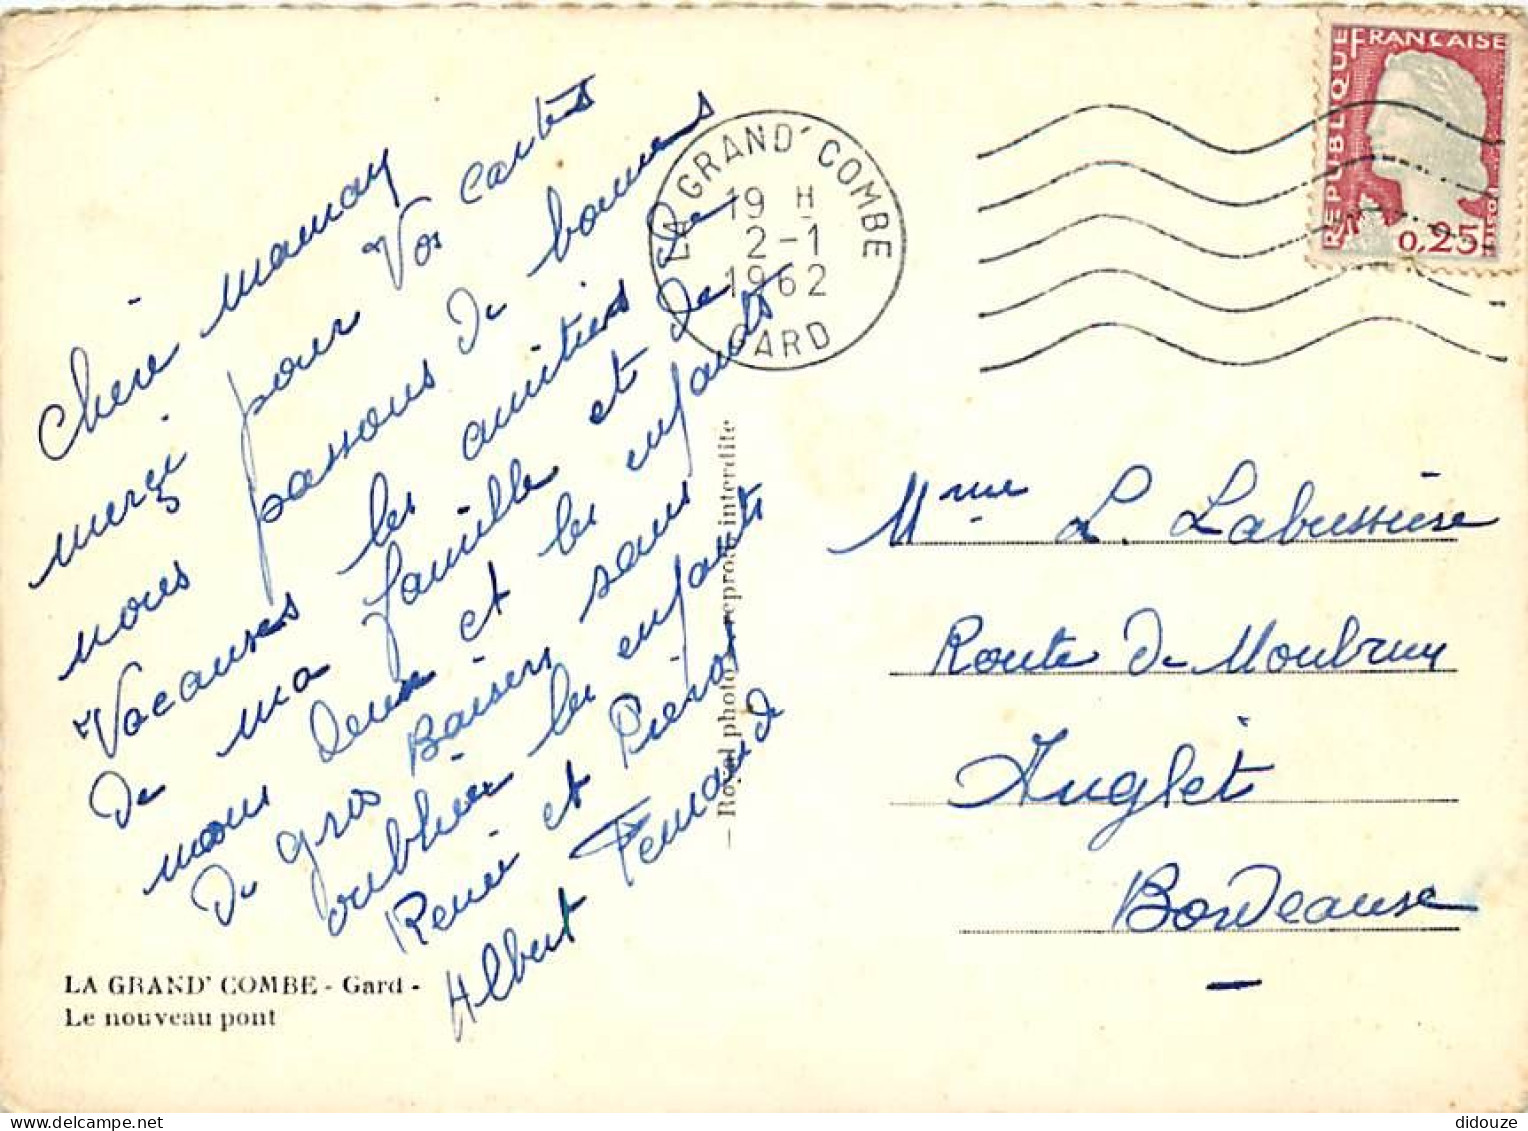 Chère maman
merçi pour Vos cartes
nous passons de bonnes
Vacances les amitiés de
de ma famille et de
nous deux et les enfants
de gros Baisers sans
oublier les enfants
René et Pierot
Albert Fernand
LA GRAND' COMBE - Gard -
Le nouveau pont
- Royal photo reprod. interdite
LA GRAND' COMBE
19 H
2-1
1962
GARD
REPUBLIQUE FRANÇAISE
0,25
Mme L. Labussière
Route de
Anglet
Bordeause
didouze